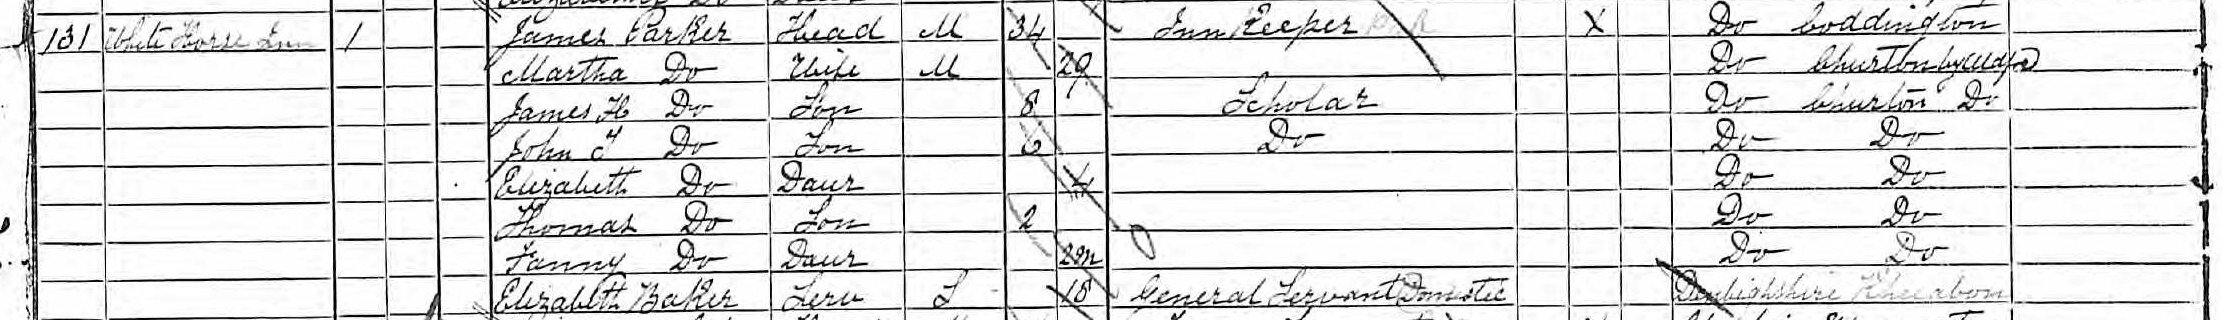 131 White Horse Inn 1 James Parker Head M 34 Inn Keeper X Do Coddington
Martha Do Wife M 29 Do Churton by Aldfd
James H Do Son 8 Scholar Do Churton Do
John T Do Son 6 Do Do Do
Elizabeth Do Daur 4 Do Do
Thomas Do Son 2 Do Do
Fanny Do Daur 2m Do Do
Elizabeth Baker Serv S 18 General Servant Domestic Denbighshire Rhuabon